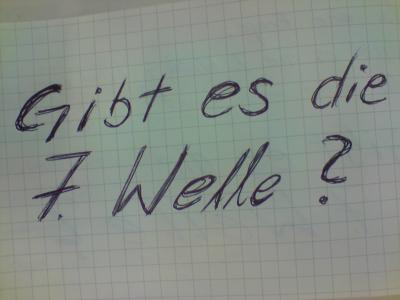 Gibt es die
7. Welle?